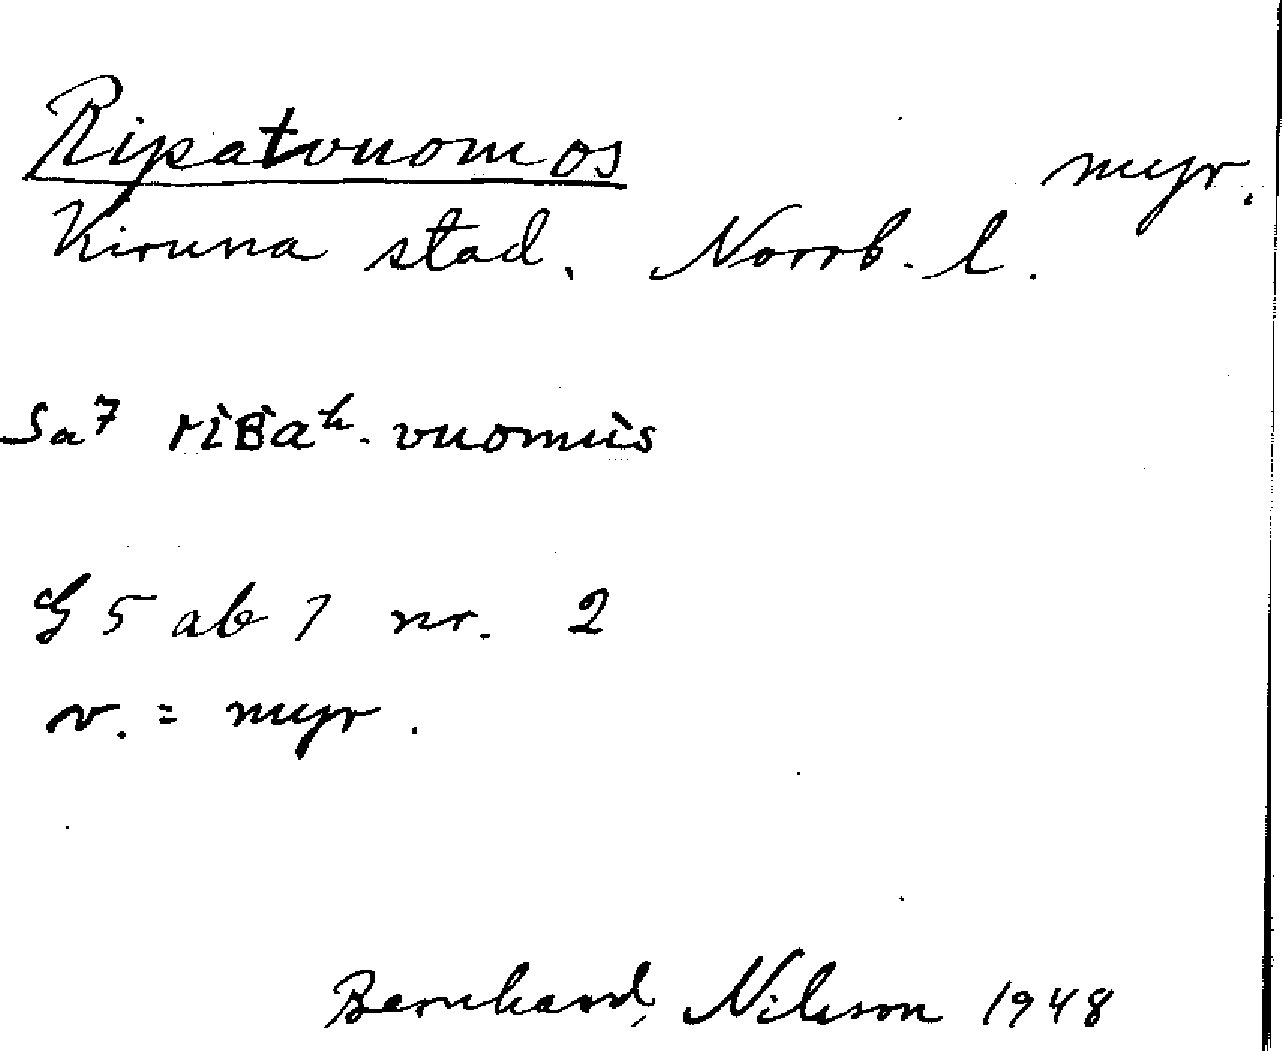 Ripatvuomos myr.
Kiruna stad. Norrb. l.
Sa⁷ rìʙ̀aʰ-vuomùs
G 5 ab 7 nr. 2
v. = myr.
Bernhard Nilsson 1948